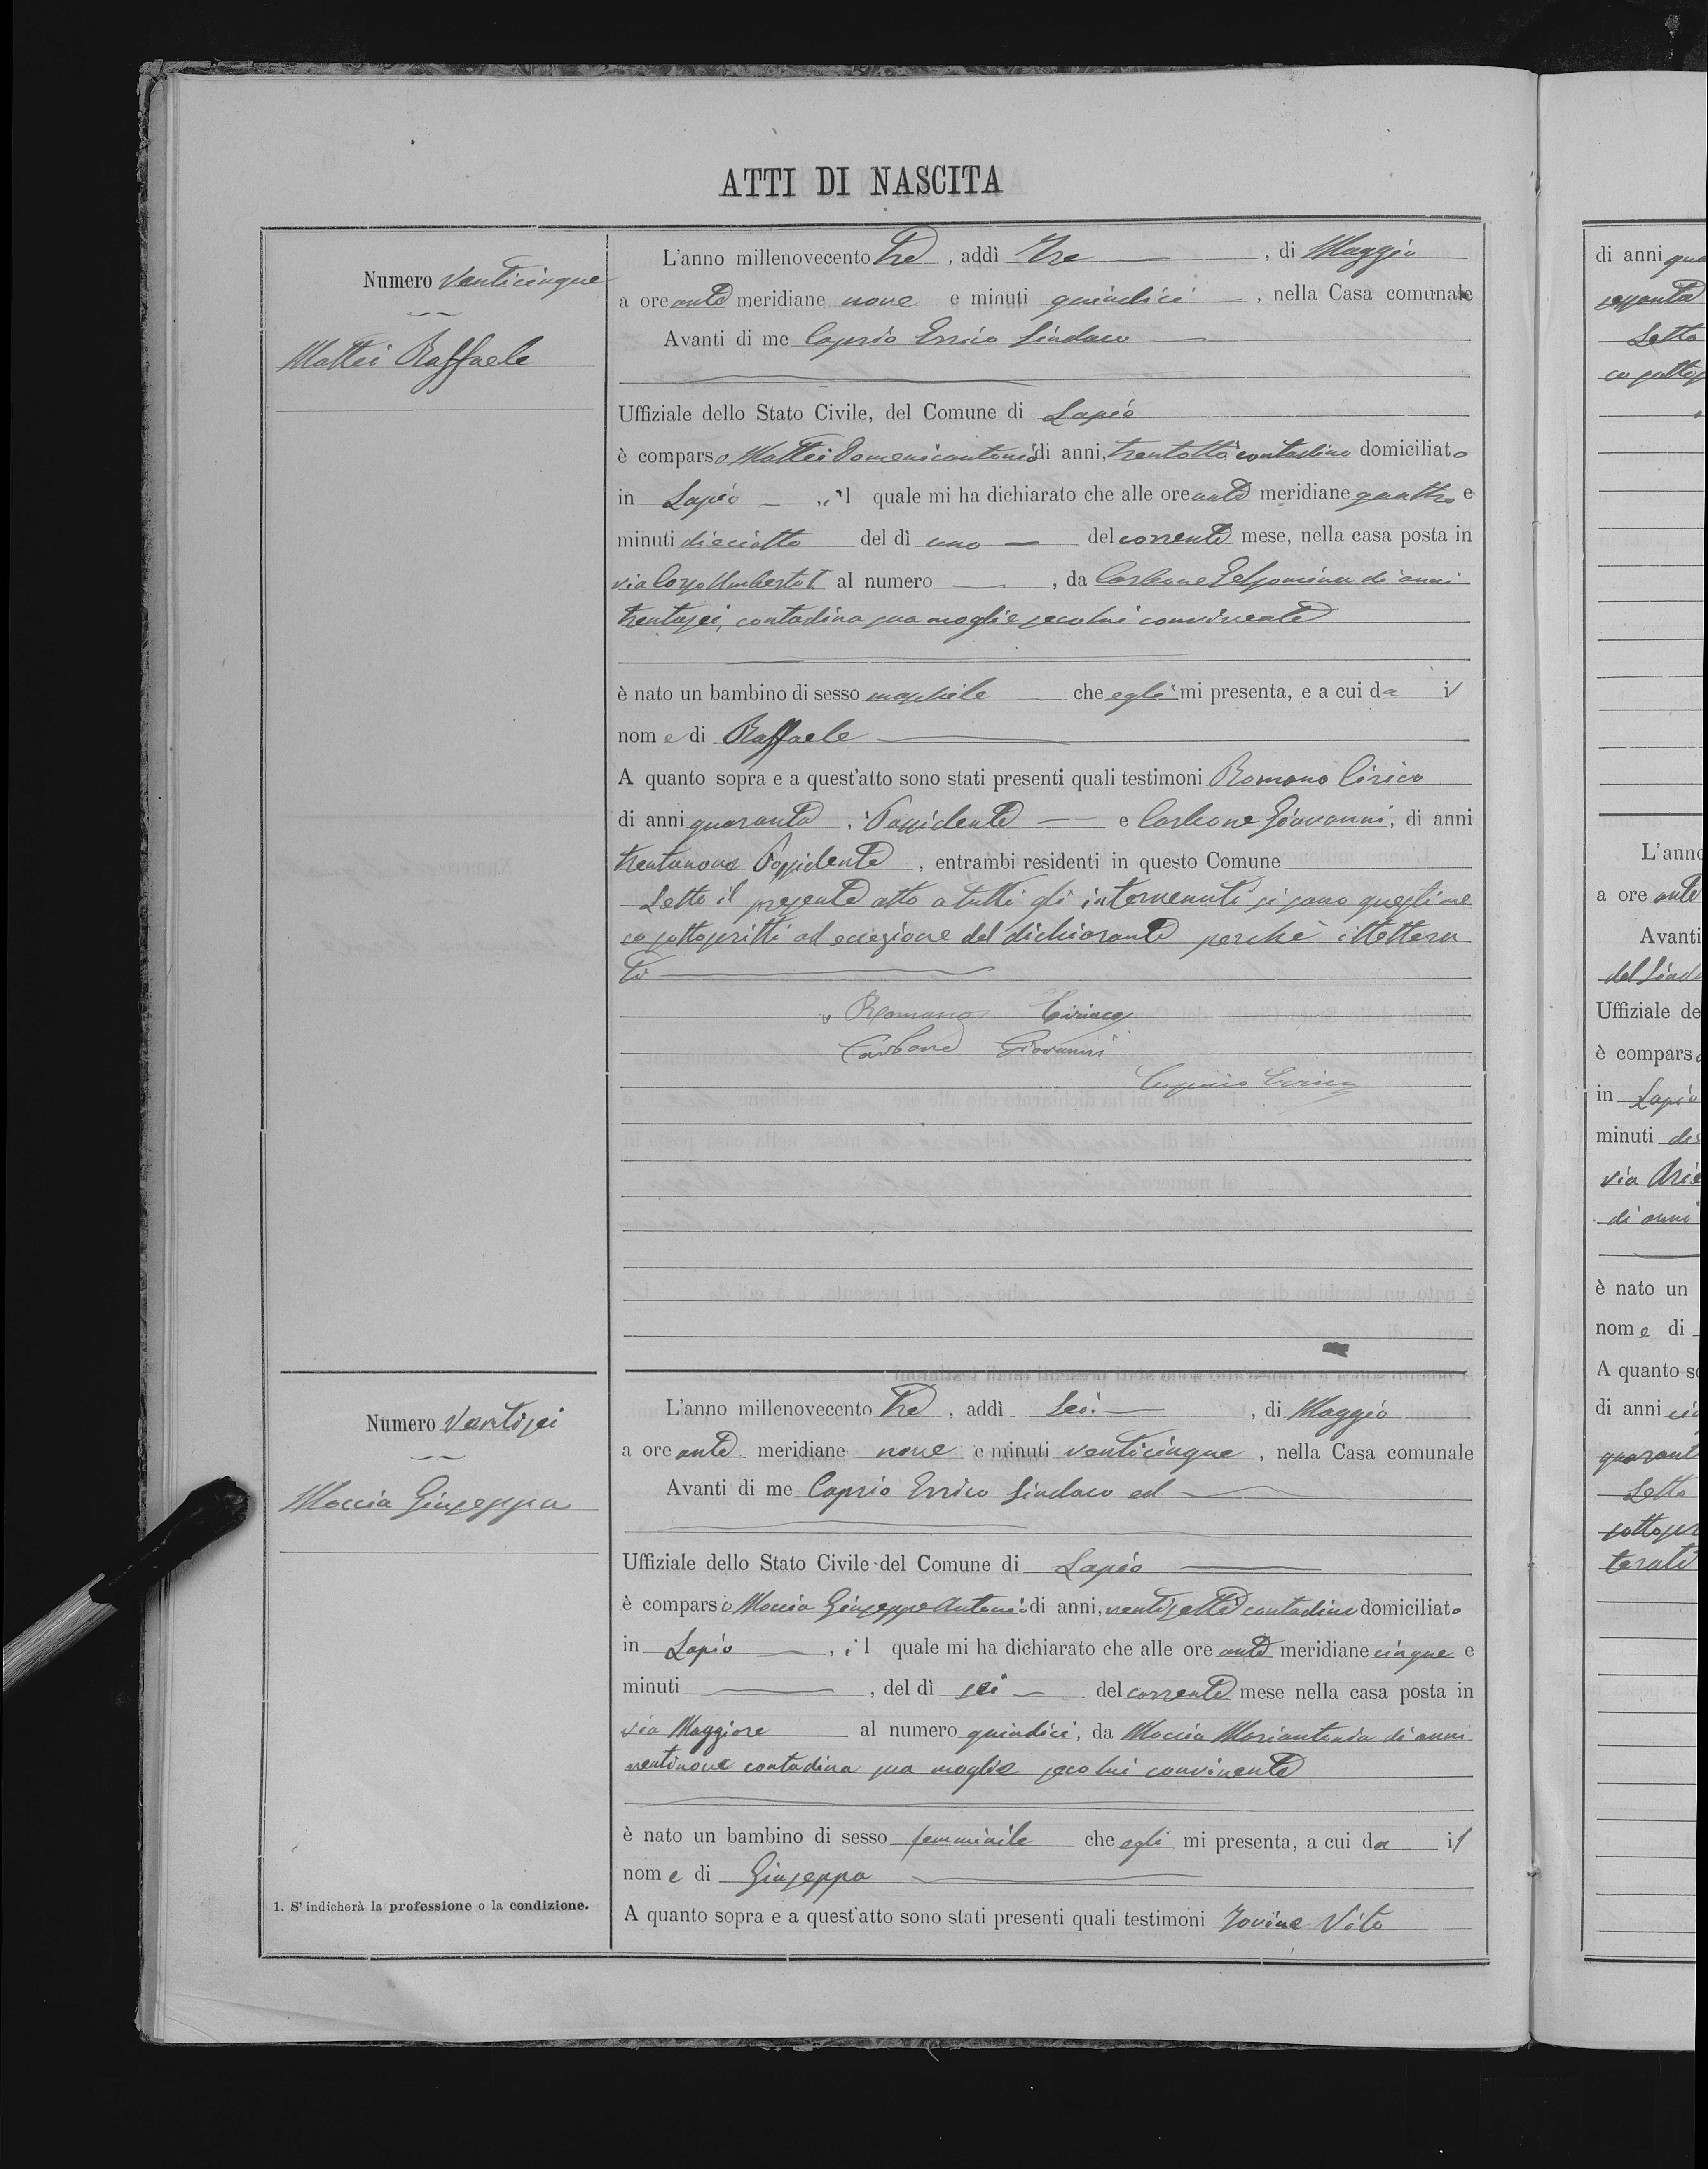 ATTI DI NASCITA
Numero venticinque
Mattei Raffaele
L'anno millenovecento tre, addì tre, di Maggio
a ore ante meridiane nove e minuti quindici, nella Casa comunale
Avanti di me Caprio Errico Sindaco
Uffiziale dello Stato Civile, del Comune di Lapio
è comparso Mattei Domenicantonio di anni, trentotto contadino domiciliato
in Lapio, il quale mi ha dichiarato che alle ore ante meridiane quattro e
minuti dieciotto del dì uno del corrente mese, nella casa posta in
via Corso Umberto I al numero, da Carbone Gelsomina di anni
trentasei, contadina sua moglie seco lui convivente
è nato un bambino di sesso maschile che egli mi presenta, e a cui da il
nome di Raffaele
A quanto sopra e a quest'atto sono stati presenti quali testimoni Romano Cirico
di anni quaranta, Possidente e Carbone Giovanni, di anni
trentanove Possidente, entrambi residenti in questo Comune
Letto il presente atto a tutti gli intervenuti si sono questi me
co sottoscritti ad eccezione del dichiarante perchè illettera
to
Romano Ciriaco
Carbone Giovanni
Caprio Errico
Numero ventisei
Moccia Giuseppa
L'anno millenovecento tre, addì sei, di Maggio
a ore ante meridiane nove e minuti venticinque, nella Casa comunale
Avanti di me Caprio Errico Sindaco ed
Uffiziale dello Stato Civile del Comune di Lapio
è comparso Moccia Giuseppe Antonio di anni, ventisette contadino domiciliato
in Lapio, il quale mi ha dichiarato che alle ore ante meridiane cinque e
minuti, del dì sei del corrente mese nella casa posta in
via Maggiore al numero quindici, da Moccia Mariantonia di anni
ventinove contadina sua moglie seco lui convivente
è nato un bambino di sesso femminile che egli mi presenta, a cui da il
nome di Giuseppa
A quanto sopra e a quest'atto sono stati presenti quali testimoni Iovine Vito
1. S'indicherà la professione o la condizione.
di anni
Letto
L'anno
a ore ante
Avanti
del Sind
Uffiziale de
è compars
in Lapio
minuti
via
di anni
è nato un
nome di
A quanto so
di anni
quarant
Letto